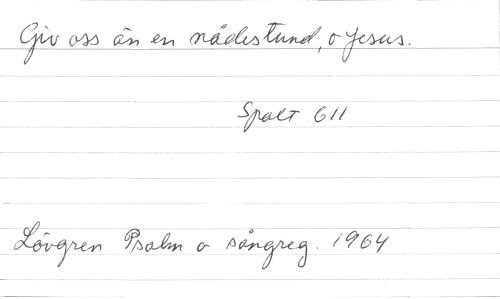 Giv oss än en nådestund, o Jesus.
Spalt 611
Lövgren Psalm o sångreg. 1964